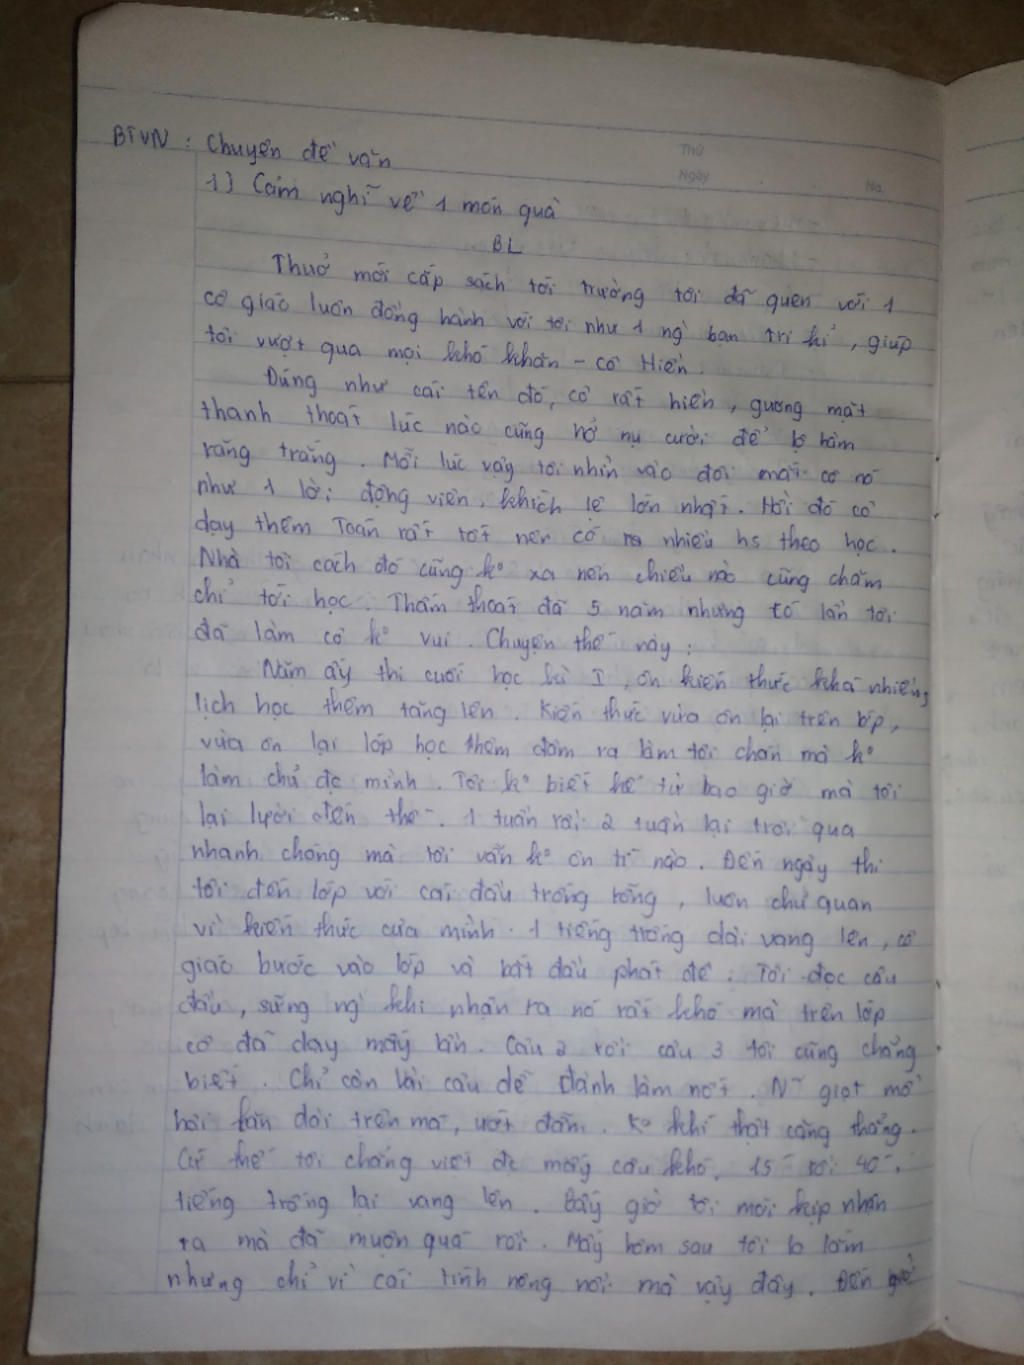 Thứ
Ngày
No.
BTVN : Chuyên đề văn
1) Cảm nghĩ về 1 món quà
BL
Thuở mới cắp sách tới trường tôi đã quen với 1
cô giáo luôn đồng hành với tôi như 1 ng` bạn tri kỉ, giúp
tôi vượt qua mọi khó khăn - cô Hiền.
Đúng như cái tên đó, cô rất hiền, gương mặt
thanh thoát lúc nào cũng nở nụ cười để lộ hàm
răng trắng. Mỗi lúc vậy tôi nhìn vào đôi mắt cô nó
như 1 lời động viên, khích lệ lớn nhất. Hồi đó cô
dạy thêm Toán rất tốt nên có nhiều hs theo học.
Nhà tôi cách đó cũng ko xa nên chiều nào cũng chăm
chỉ tới học. Thấm thoát đã 5 năm nhưng có lần tôi
đã làm cô ko vui. Chuyện thế này :
Năm ấy thi cuối học kì I, ôn kiến thức khá nhiều,
lịch học thêm tăng lên. Kiến thức vừa ôn lại trên lớp,
vừa ôn lại lớp học thêm đâm ra làm tôi chán mà ko
làm chủ đc mình. Tôi ko biết kể từ bao giờ mà tôi
lại lười đến thế. 1 tuần rồi 2 tuần lại trôi qua
nhanh chóng mà tôi vẫn ko ôn tí nào. Đến ngày thi
tôi đến lớp với cái đầu trống rỗng, luôn chủ quan
vì kiến thức của mình. 1 tiếng trống dài vang lên, cô
giáo bước vào lớp và bắt đầu phát đề. Tôi đọc câu
đầu, sững ng` khi nhận ra nó rất khó mà trên lớp
cô đã dạy mấy lần. Câu 2 rồi câu 3 tôi cũng chẳng
biết. Chỉ còn vài câu dễ đành làm nốt. N~ giọt mồ
hôi lăn dài trên má, ướt đẫm. Ko khí thật căng thẳng.
Cứ thế tôi chẳng viết đc mấy câu khó. 15' rồi 40',
tiếng trống lại vang lên. Bây giờ tôi mới kịp nhận
ra mà đã muộn quá rồi. Mấy hôm sau tôi lo lắm
nhưng chỉ vì cái tính nông nổi mà vậy đấy. Đến